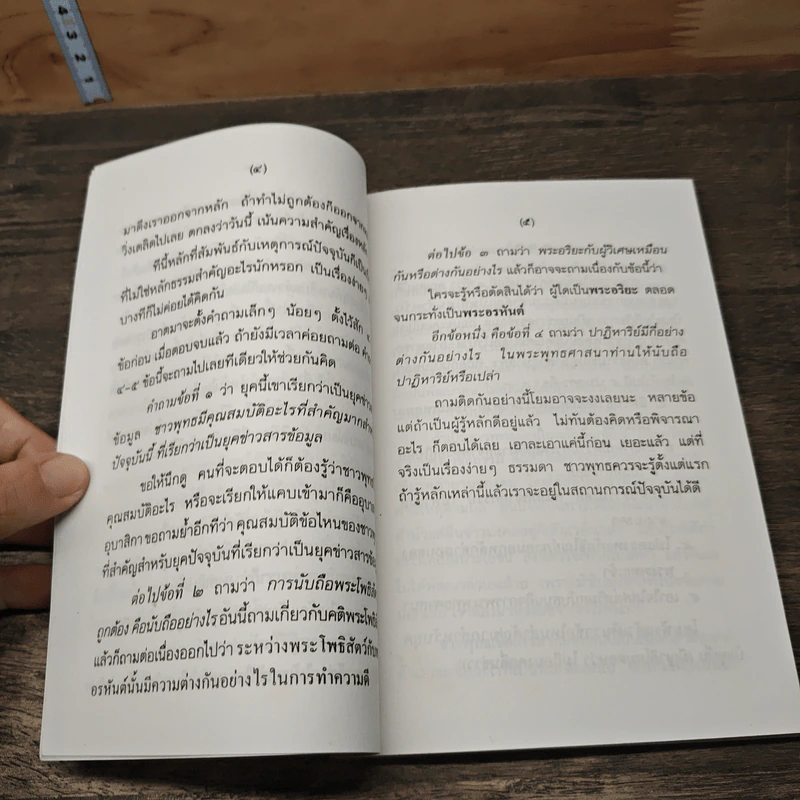 4
3
2
1
(๔)
มาดึงเราออกจากหลัก ถ้าทำไม่ถูกต้องก็ออกจาก
วิ่งเตลิดไปเลย ตกลงว่าวันนี้ เน้นความสำคัญเรื่อง
ทีนี้หลักที่สัมพันธ์กับเหตุการณ์ปัจจุบันก็เป็น
ที่ไม่ใช่หลักธรรมสำคัญอะไรนักหรอก เป็นเรื่องง่ายๆ
บางทีก็ไม่ค่อยได้คิดกัน
อาตมาจะตั้งคำถามเล็กๆ น้อยๆ ตั้งไว้สัก
ข้อก่อน เมื่อตอบจบแล้ว ถ้ายังมีเวลาค่อยถามต่อ
๔-๕ ข้อนี้จะถามไปเลยทีเดียวให้ช่วยกันคิด
คำถามข้อที่ ๑ ว่า ยุคนี้เขาเรียกว่าเป็นยุคข่าว
ข้อมูล ชาวพุทธมีคุณสมบัติอะไรที่สำคัญมาก
ปัจจุบันนี้ ที่เรียกว่าเป็นยุคข่าวสารข้อมูล
ขอให้นึกดู คนที่จะตอบได้ก็ต้องรู้ว่าชาวพุทธ
คุณสมบัติอะไร หรือจะเรียกให้แคบเข้ามาก็คืออุบา
อุบาสิกา ขอถามย้ำอีกทีว่า คุณสมบัติข้อไหนของชาว
ที่สำคัญสำหรับยุคปัจจุบันที่เรียกว่าเป็นยุคข่าวสาร
ต่อไปข้อที่ ๒ ถามว่า การนับถือพระโพธิ
ถูกต้อง คือนับถืออย่างไร อันนี้ถามเกี่ยวกับคติพระโพธิ
แล้วก็ถามต่อเนื่องออกไปว่า ระหว่างพระโพธิสัตว์กับ
อรหันต์นั้นมีความต่างกันอย่างไรในการทำความดี
(๕)
ต่อไปข้อ ๓ ถามว่า พระอริยะกับผู้วิเศษเหมือน
กันหรือต่างกันอย่างไร แล้วก็อาจจะถามเนื่องกับข้อนี้ว่า
ใครจะรู้หรือตัดสินได้ว่า ผู้ใดเป็นพระอริยะ ตลอด
จนกระทั่งเป็นพระอรหันต์
อีกข้อหนึ่ง คือข้อที่ ๔ ถามว่า ปาฏิหาริย์มีกี่อย่าง
ต่างกันอย่างไร ในพระพุทธศาสนาท่านให้นับถือ
ปาฏิหาริย์หรือเปล่า
ถามติดกันอย่างนี้โยมอาจจะงงเลยนะ หลายข้อ
แต่ถ้าเป็นผู้รู้หลักดีอยู่แล้ว ไม่ทันต้องคิดหรือพิจารณา
อะไร ก็ตอบได้เลย เอาละเอาแค่นี้ก่อน เยอะแล้ว แต่ที่
จริงเป็นเรื่องง่ายๆ ธรรมดา ชาวพุทธควรจะรู้ตั้งแต่แรก
ถ้ารู้หลักเหล่านี้แล้วเราจะอยู่ในสถานการณ์ปัจจุบันได้ดี